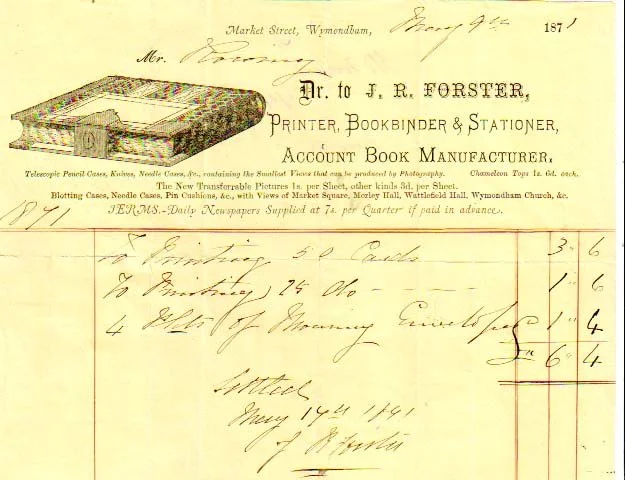 Market Street, Wymondham, May 9th 1871
Mr.
Dr. to J. R. FORSTER,
PRINTER, BOOKBINDER & STATIONER,
ACCOUNT BOOK MANUFACTURER,
Telescopic Pencil Cases, Knives, Needle Cases, &c., containing the Smallest Views that can be produced by Photography. Chameleon Tops 1s. 6d. each.
The New Transferrable Pictures 1s. per Sheet, other kinds 3d. per Sheet.
Blotting Cases, Needle Cases, Pin Cushions, &c., with Views of Market Square, Morley Hall, Wattlefield Hall, Wymondham Church, &c.
TERMS.-Daily Newspapers Supplied at 7s. per Quarter if paid in advance.
1871
To Printing 50 Cards 3 " 6
To Printing 25 do - - - - - 1 " 6
4 Pkts of Mourning Envelopes 1 " 4
6 " 4
Settled
May 17th 1871
J R Forster